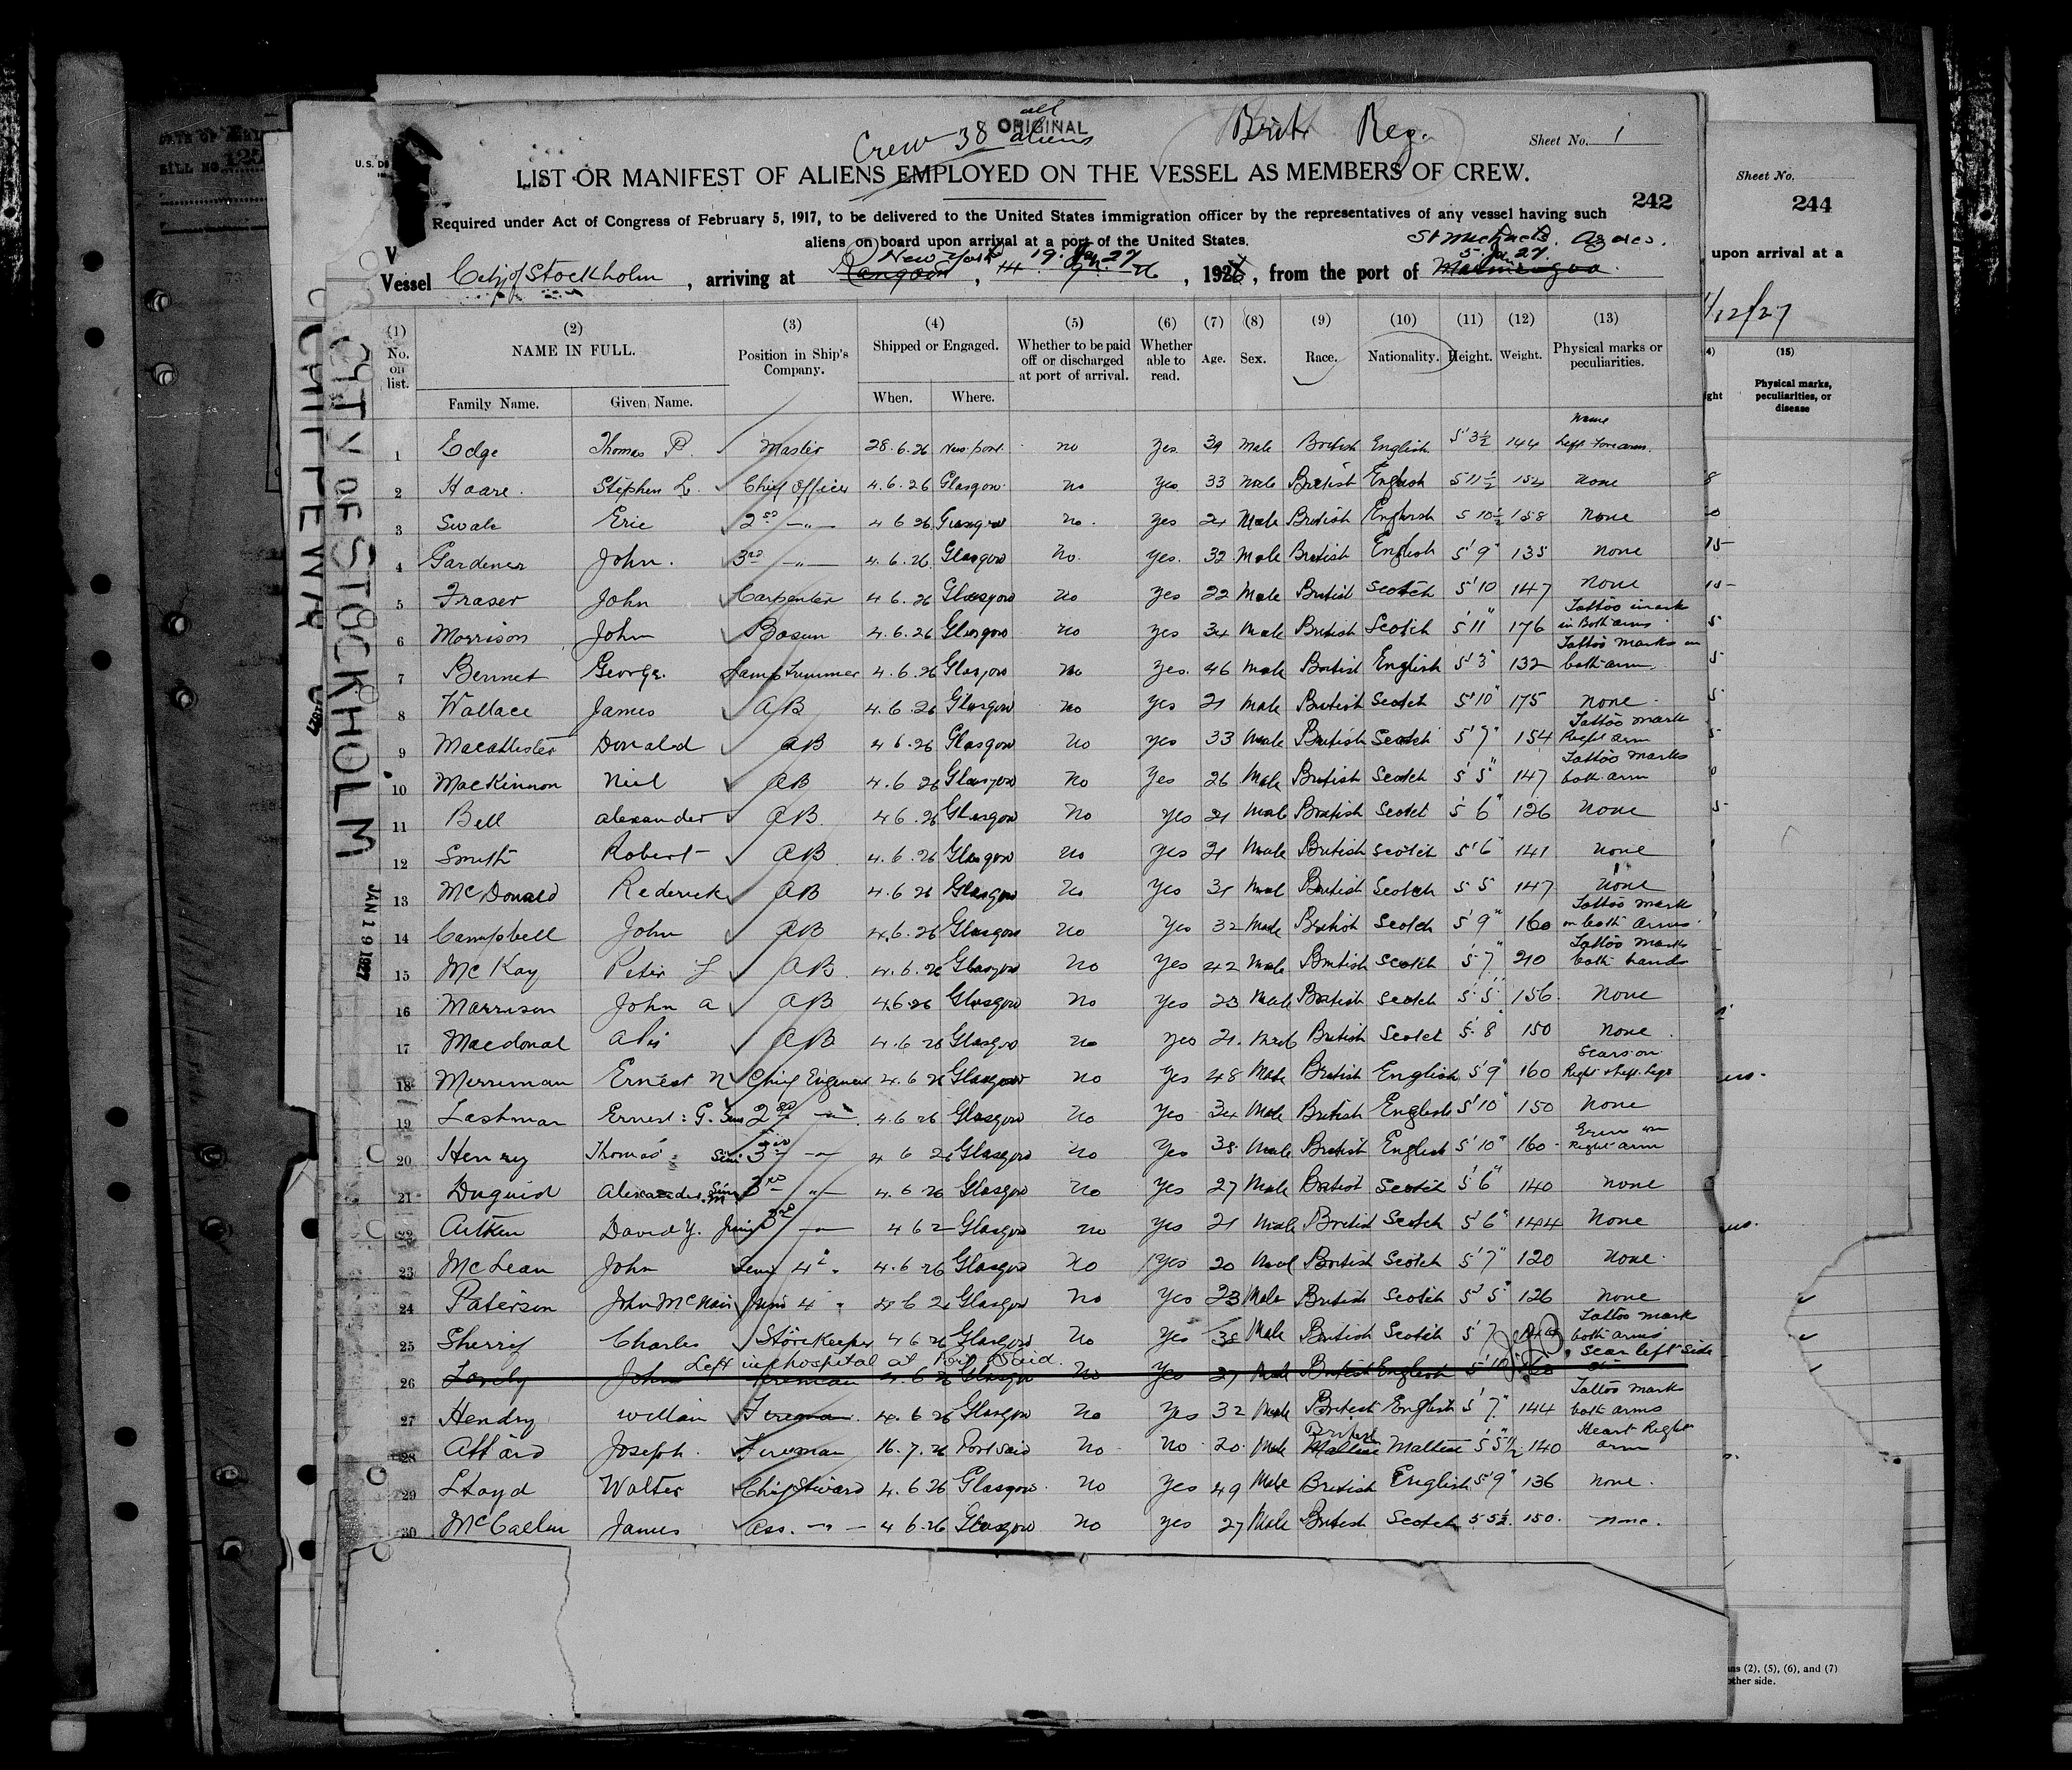 Crew 38 all aliens
ORIGINAL
Brit Reg.
Sheet No. 1
LIST OR MANIFEST OF ALIENS EMPLOYED ON THE VESSEL AS MEMBERS OF CREW.
242
Required under Act of Congress of February 5, 1917, to be delivered to the United States immigration officer by the representatives of any vessel having such
aliens on board upon arrival at a port of the United States.
St Michaels. Azores.
New York 19. Jan. 27 5. Ja. 27.
Vessel City of Stockholm, arriving at Rangoon, 192, from the port of
(1) (2) (3) (4) (5) (6) (7) (8) (9) (10) (11) (12) (13)
No. on list. NAME IN FULL. Position in Ship's Company. Shipped or Engaged. Whether to be paid off or discharged at port of arrival. Whether able to read. Age. Sex. Race. Nationality. Height. Weight. Physical marks or peculiarities.
Family Name. Given Name. When. Where.
1 Edge Thomas P. Master 28.6.26 no Yes 39 Male British English 5'3½ 144 Left forearm.
2 Hoare. Stephen L. Chief Officer 4.6.26 Glasgow no Yes 33 Male British English 5 11½ none
3 Swale Eric 2nd -"- 4 6 26 Glasgow no. Yes 24 Male British English 5 10½ 158 none
4 Gardener John. 3rd -"- 4.6.26 Glasgow No. Yes. 32 Male British English 5'9" 135 none
5 Fraser John Carpenter 4 6.26 Glasgow no Yes 22 Male British Scotch 5'10 147 none
6 Morrison John Bosun 4.6.26 Glasgow no Yes 34 Male British Scotch 5'11" 176 Tattoo mark in Both arms
7 Bennet George. Lamp Trimmer 4.6.26 Glasgow No Yes. 46 Male British English 5'3" 132 Tattoo marks on both arm.
8 Wallace James AB 4.6.26 Glasgow no Yes 21 Male British Scotch 5'10" 175 none
9 Macallister Donald AB 4 6.26 Glasgow No Yes 33 Male British Scotch 5'7" 154 Tattoo mark Right arm
10 MacKinnon Neil AB 4.6.26 Glasgow No Yes 26 Male British Scotch 5'5" 147 Tattoo marks both arm
11 Bell alexander AB. 4 6.26 Glasgow No Yes 21 Male British Scotch 5'6" 126 none
12 Smith Robert AB. 4.6.26 Glasgow no Yes 21 Male British Scotch 5'6" 141 none
13 McDonald Rederick AB 4.6 26 Glasgow no Yes 31 Male British Scotch 5 5 147 none
14 Campbell John AB 4.6.26 Glasgow no Yes 32 Male British Scotch 5'9" 160 Tattoo mark on both arms.
15 McKay Peter AB. 4.6.26 Glasgow No Yes 42 Male British Scotch 5'7" 210 Tattoo marks both hands
16 Marrison John a AB 4.6 26 Glasgow No Yes 23 Male British Scotch 5'5" 156. None
17 Macdonal AB 4.6 26 Glasgow no Yes 21. Male British Scotch 5.8" 150 none
18 Merriman Ernest N Chief Engineer 4.6 26 Glasgow no Yes 48 Male British English 5'9" 160 Scars on Right & Left Legs
19 Lashmar Ernest: G. 2nd -"- 4.6 26 Glasgow no Yes 34 Male British English 5'10" 150 none
20 Henry Thomas 3rd -"- 4 6 26 Glasgow no Yes 38 Male British English 5'10" 160 Right arm
21 Duguid Alexander 3rd -"- 4.6 26 Glasgow No Yes 27 Male British Scotch 5'6" 140 none
22 Aitken David Y. Junior 3rd -"- 4 6 2 Glasgow no Yes 21 Male British Scotch 5'6" 144 None
23 McLean John Senr 4th 4.6 26 Glasgow No Yes 20 Male British Scotch 5'7" 120 none.
24 Paterson John McNair Junr 4 " 4 6 26 Glasgow No Yes 23 Male British Scotch 5'5" 126 none
25 Sherry Charles Storekeeper 4 6 26 Glasgow No Yes 38 Male British Scotch 5'7 Tattoo mark both arms
Left in hospital at Port Said.
26 John Fireman 4.6 26 Glasgow No Yes 27 Male British English 5'10 Scar left side
27 Hendry William Fireman. 4.6 26 Glasgow No Yes 32 Male British English 5'7" 144 Tattoo marks both arms
28 Attard Joseph. Fireman 16.7.26 Port Said No No 20. Male British Maltese Maltese 5'5"½ 140 Heart Right arm
29 Lloyd Walter Chief Steward 4.6 26 Glasgow. no Yes 49 Male British English 5'9" 136 none.
30 McCallum James Ass. -"- 4 6.26 Glasgow no yes 27 Male British Scotch 5.5½ 150. none.
CITY OF STOCKHOLM
JAN 19 1927
CHIPPEWA
Sheet No.
244
upon arrival at a
12/27
(15)
Physical marks, peculiarities, or disease
ns (2), (5), (6), and (7)
other side.
BILL NO. 125